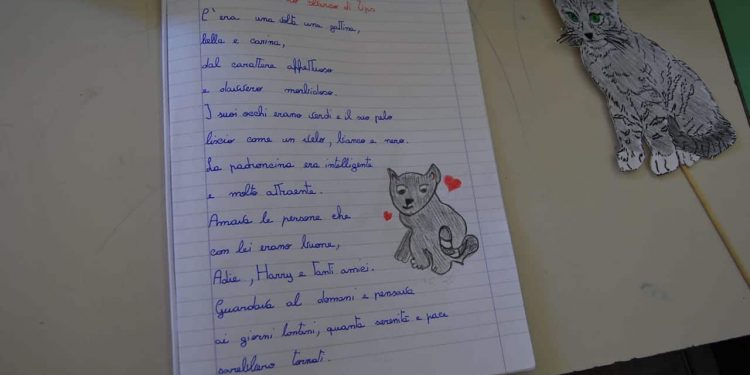 di Tips
C'era una volta una gattina,
bella e carina,
dal carattere affettuoso
e davvero morbidoso.
I suoi occhi erano verdi e il suo pelo
liscio come un velo, bianco e nero.
La padroncina era intelligente
e molto attraente.
Amava le persone che
con lei erano buone,
Adie, Harry e Tanti amici.
Guardava al domani e pensava
ai giorni lontani, quanta serenità e pace
sarebbero tornati.